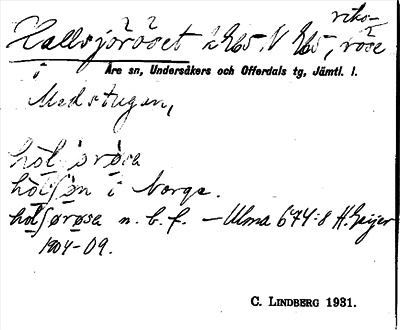 Hallsjöröset 2 765, V 765, riksröse
i Åre sn, Undersåkers och Offerdals tg, Jämtl. l.
Medstugan,
høl∫ørøsa
høl∫øn i Norge.
høl∫ørøsa n. b. f. – Ulma 674:8 H. Geijer
1904-09.
C. LINDBERG 1931.